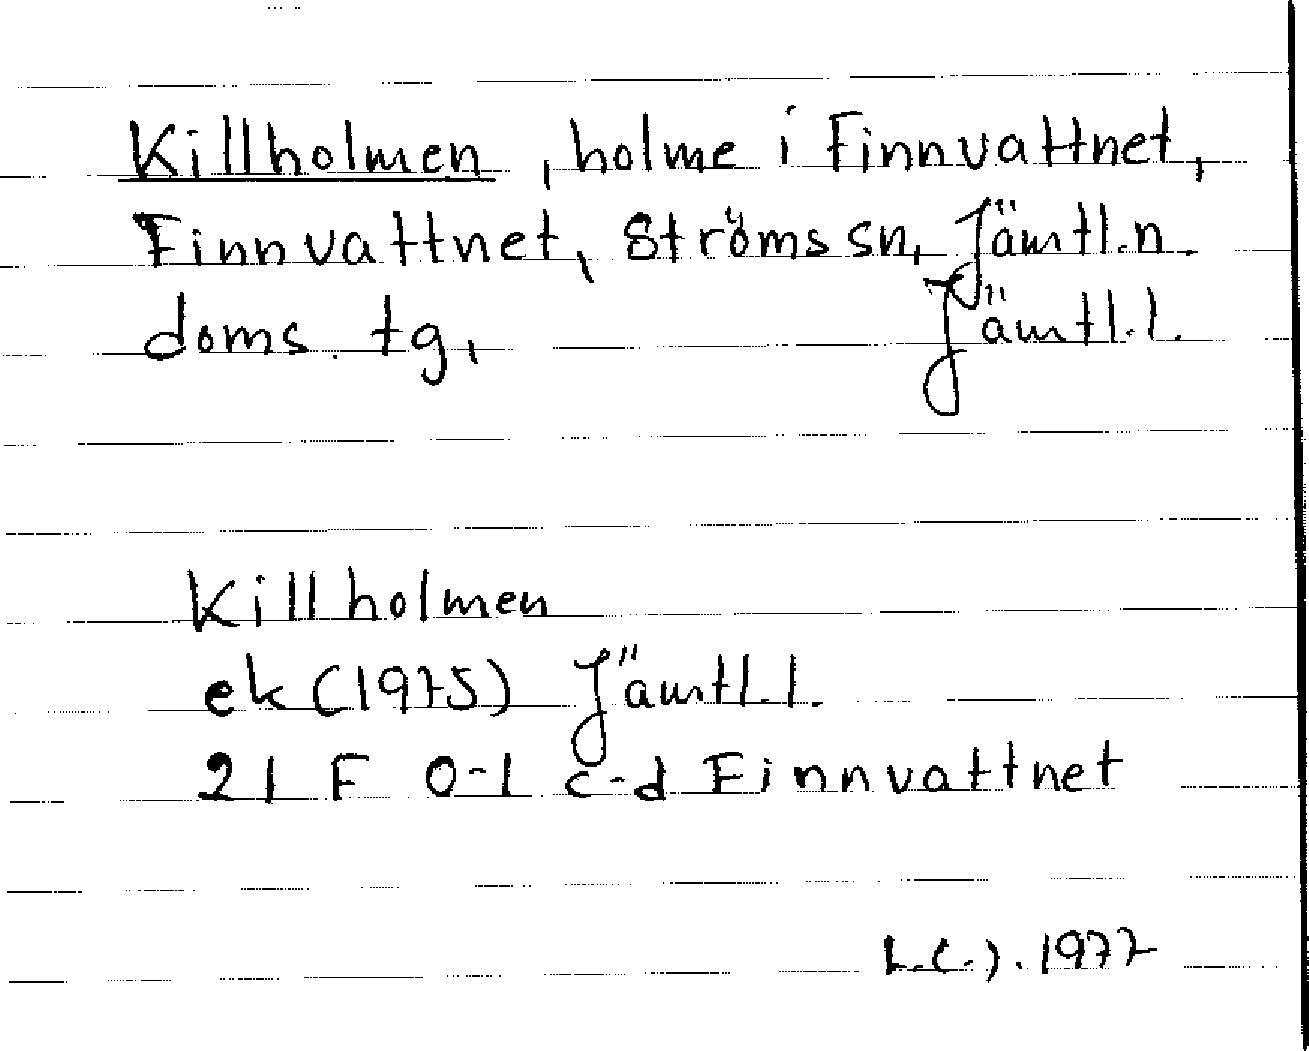 Killholmen, holme i Finnvattnet,
Finnvattnet, Ströms sn, Jämtl.n.
doms. tg, Jämtl.l.
Killholmen
ek (1975) Jämtl.l.
21 F 0-1 c-d Finnvattnet
1977